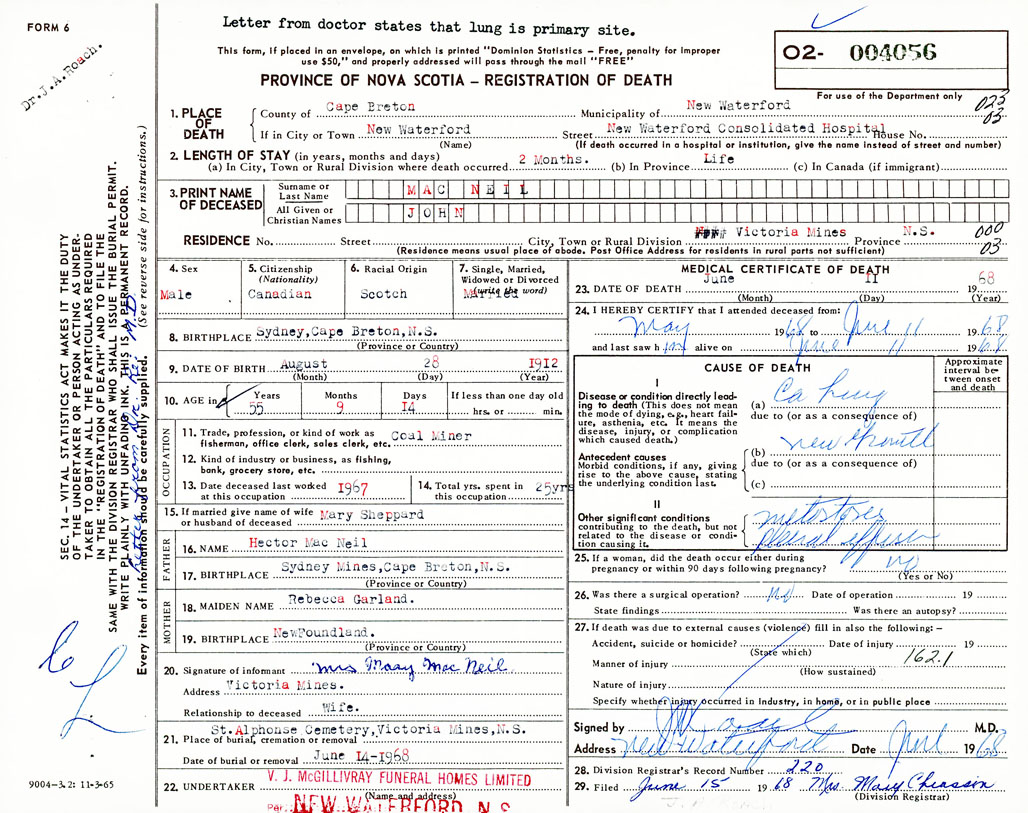 FORM 6
Letter from doctor states that lung is primary site.
Dr. J.A. Roach.
This form, if placed in an envelope, on which is printed "Dominion Statistics – Free, penalty for improper
use $50," and properly addressed will pass through the mail "FREE"
PROVINCE OF NOVA SCOTIA – REGISTRATION OF DEATH
O2- 004056
For use of the Department only
023
03
1. PLACE OF DEATH
County of Cape Breton Municipality of New Waterford
If in City or Town New Waterford Street New Waterford Consolidated Hospital House No.
(Name) (If death occurred in a hospital or institution, give the name instead of street and number)
2. LENGTH OF STAY (in years, months and days)
(a) In City, Town or Rural Division where death occurred 2 Months. (b) In Province Life (c) In Canada (if immigrant)
3. PRINT NAME OF DECEASED
Surname or Last Name MAC NEIL
All Given or Christian Names JOHN
RESIDENCE No. Street City, Town or Rural Division Victoria Mines Province N.S.
000
03
(Residence means usual place of abode. Post Office Address for residents in rural parts not sufficient)
4. Sex
Male
5. Citizenship
(Nationality)
Canadian
6. Racial Origin
Scotch
7. Single, Married,
Widowed or Divorced
(write the word)
Married
8. BIRTHPLACE Sydney,Cape Breton,N.S.
(Province or Country)
9. DATE OF BIRTH August 28 1912
(Month) (Day) (Year)
10. AGE in
Years 55
Months 9
Days 14
If less than one day old
hrs. or min.
OCCUPATION
11. Trade, profession, or kind of work as
fisherman, office clerk, sales clerk, etc. Coal Miner
12. Kind of industry or business, as fishing,
bank, grocery store, etc.
13. Date deceased last worked
at this occupation 1967
14. Total yrs. spent in
this occupation 25yrs
15. If married give name of wife
or husband of deceased Mary Sheppard
FATHER
16. NAME Hector Mac Neil
17. BIRTHPLACE Sydney Mines,Cape Breton,N.S.
(Province or Country)
MOTHER
18. MAIDEN NAME Rebecca Garland.
19. BIRTHPLACE NewFoundland.
(Province or Country)
20. Signature of informant Mrs Mary Mac Neil
Address Victoria Mines.
Relationship to deceased Wife.
St.Alphonse Cemetery,Victoria Mines,N.S.
21. Place of burial, cremation or removal
Date of burial or removal June 14-1968
22. UNDERTAKER V. J. McGILLIVRAY FUNERAL HOMES LIMITED
(Name and address)
Per. NEW WATERFORD, N.S.
MEDICAL CERTIFICATE OF DEATH
23. DATE OF DEATH June 11 1968
(Month) (Day) (Year)
24. I HEREBY CERTIFY that I attended deceased from:
May 1968 to June 11 1968
and last saw him alive on June 11 1968
CAUSE OF DEATH
Approximate interval between onset and death
I
Disease or condition directly leading
to death (This does not mean
the mode of dying, e.g., heart failure,
asthenia, etc. It means the
disease, injury, or complication
which caused death.)
(a) Ca Lung
due to (or as a consequence of)
Antecedent causes
Morbid conditions, if any, giving
rise to the above cause, stating
the underlying condition last.
(b) New Growth
due to (or as a consequence of)
(c)
II
Other significant conditions
contributing to the death, but not
related to the disease or condition
causing it.
metastases
pleural effusion
25. If a woman, did the death occur either during
pregnancy or within 90 days following pregnancy? no
(Yes or No)
26. Was there a surgical operation? No Date of operation 19
State findings Was there an autopsy?
27. If death was due to external causes (violence) fill in also the following: –
Accident, suicide or homicide? Date of injury 19
(State which)
162.1
Manner of injury
(How sustained)
Nature of injury
Specify whether injury occurred in Industry, in home, or in public place
Signed by M.D.
Address New Waterford Date June 1968
28. Division Registrar's Record Number 220
29. Filed June 15 1968 Mrs. Mary Chiasson
(Division Registrar)
SEC. 14 – VITAL STATISTICS ACT MAKES IT THE DUTY
OF THE UNDERTAKER OR PERSON ACTING AS UNDER-
TAKER TO OBTAIN ALL THE PARTICULARS REQUIRED
IN THE "REGISTRATION OF DEATH" AND TO FILE THE
SAME WITH THE DIVISION REGISTRAR WHO SHALL ISSUE THE BURIAL PERMIT.
WRITE PLAINLY WITH UNFADING INK. THIS IS A PERMANENT RECORD.
Every item of information should be carefully supplied. (See reverse side for instructions.)
9004-3.2: 11-3-65